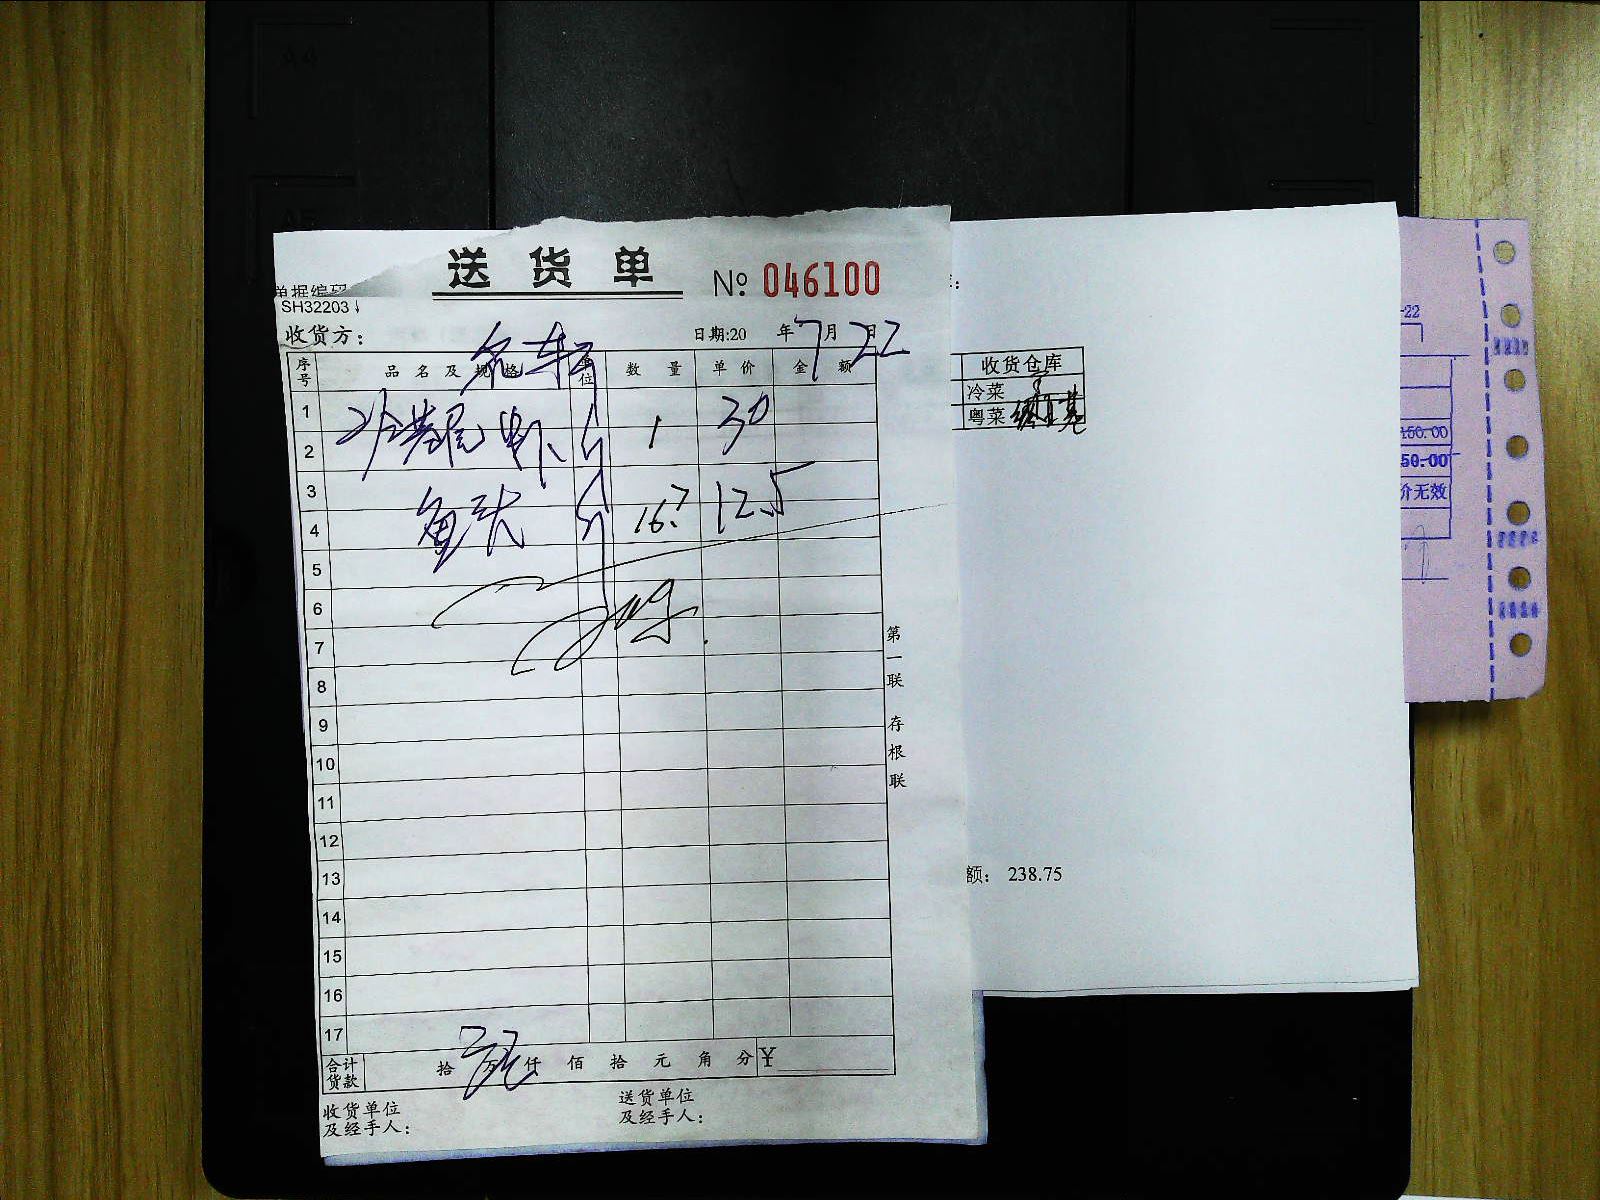 送货单
№ 046100
单据编码
SH32203
收货方：
日期:20 年7月22日
序号 品名及规格 单位 数量 单价 金额
1
2 1 30
3
4 鱼头 斤 16.7 12.5
5
6
7
8
9
10
11
12
13
14
15
16
17
合计货款 拾 万 仟 佰 拾 元 角 分 ¥
收货单位
及经手人：
送货单位
及经手人：
第一联 存根联
收货仓库
冷菜
粤菜
额： 238.75
-22
150.00
50.00
价无效